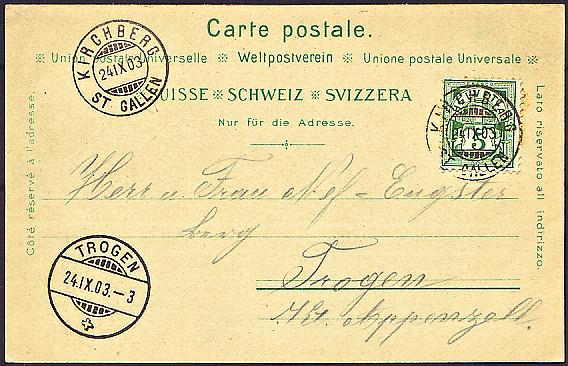 Carte postale.
※ Union postale universelle ※ Weltpostverein ※ Unione postale Universale ※
SUISSE ※ SCHWEIZ ※ SVIZZERA
Nur für die Adresse.
Côté réservé à l'adresse.
Lato riservato all indirizzo.
KIRCHBERG
24 IX 03
ST GALLEN
KIRCHBERG
24 IX 03
5
GALLEN
Herr u. Frau Nef-Engster
berg
Trogen
Kt. Appenzell.
TROGEN
24.IX.03.–3